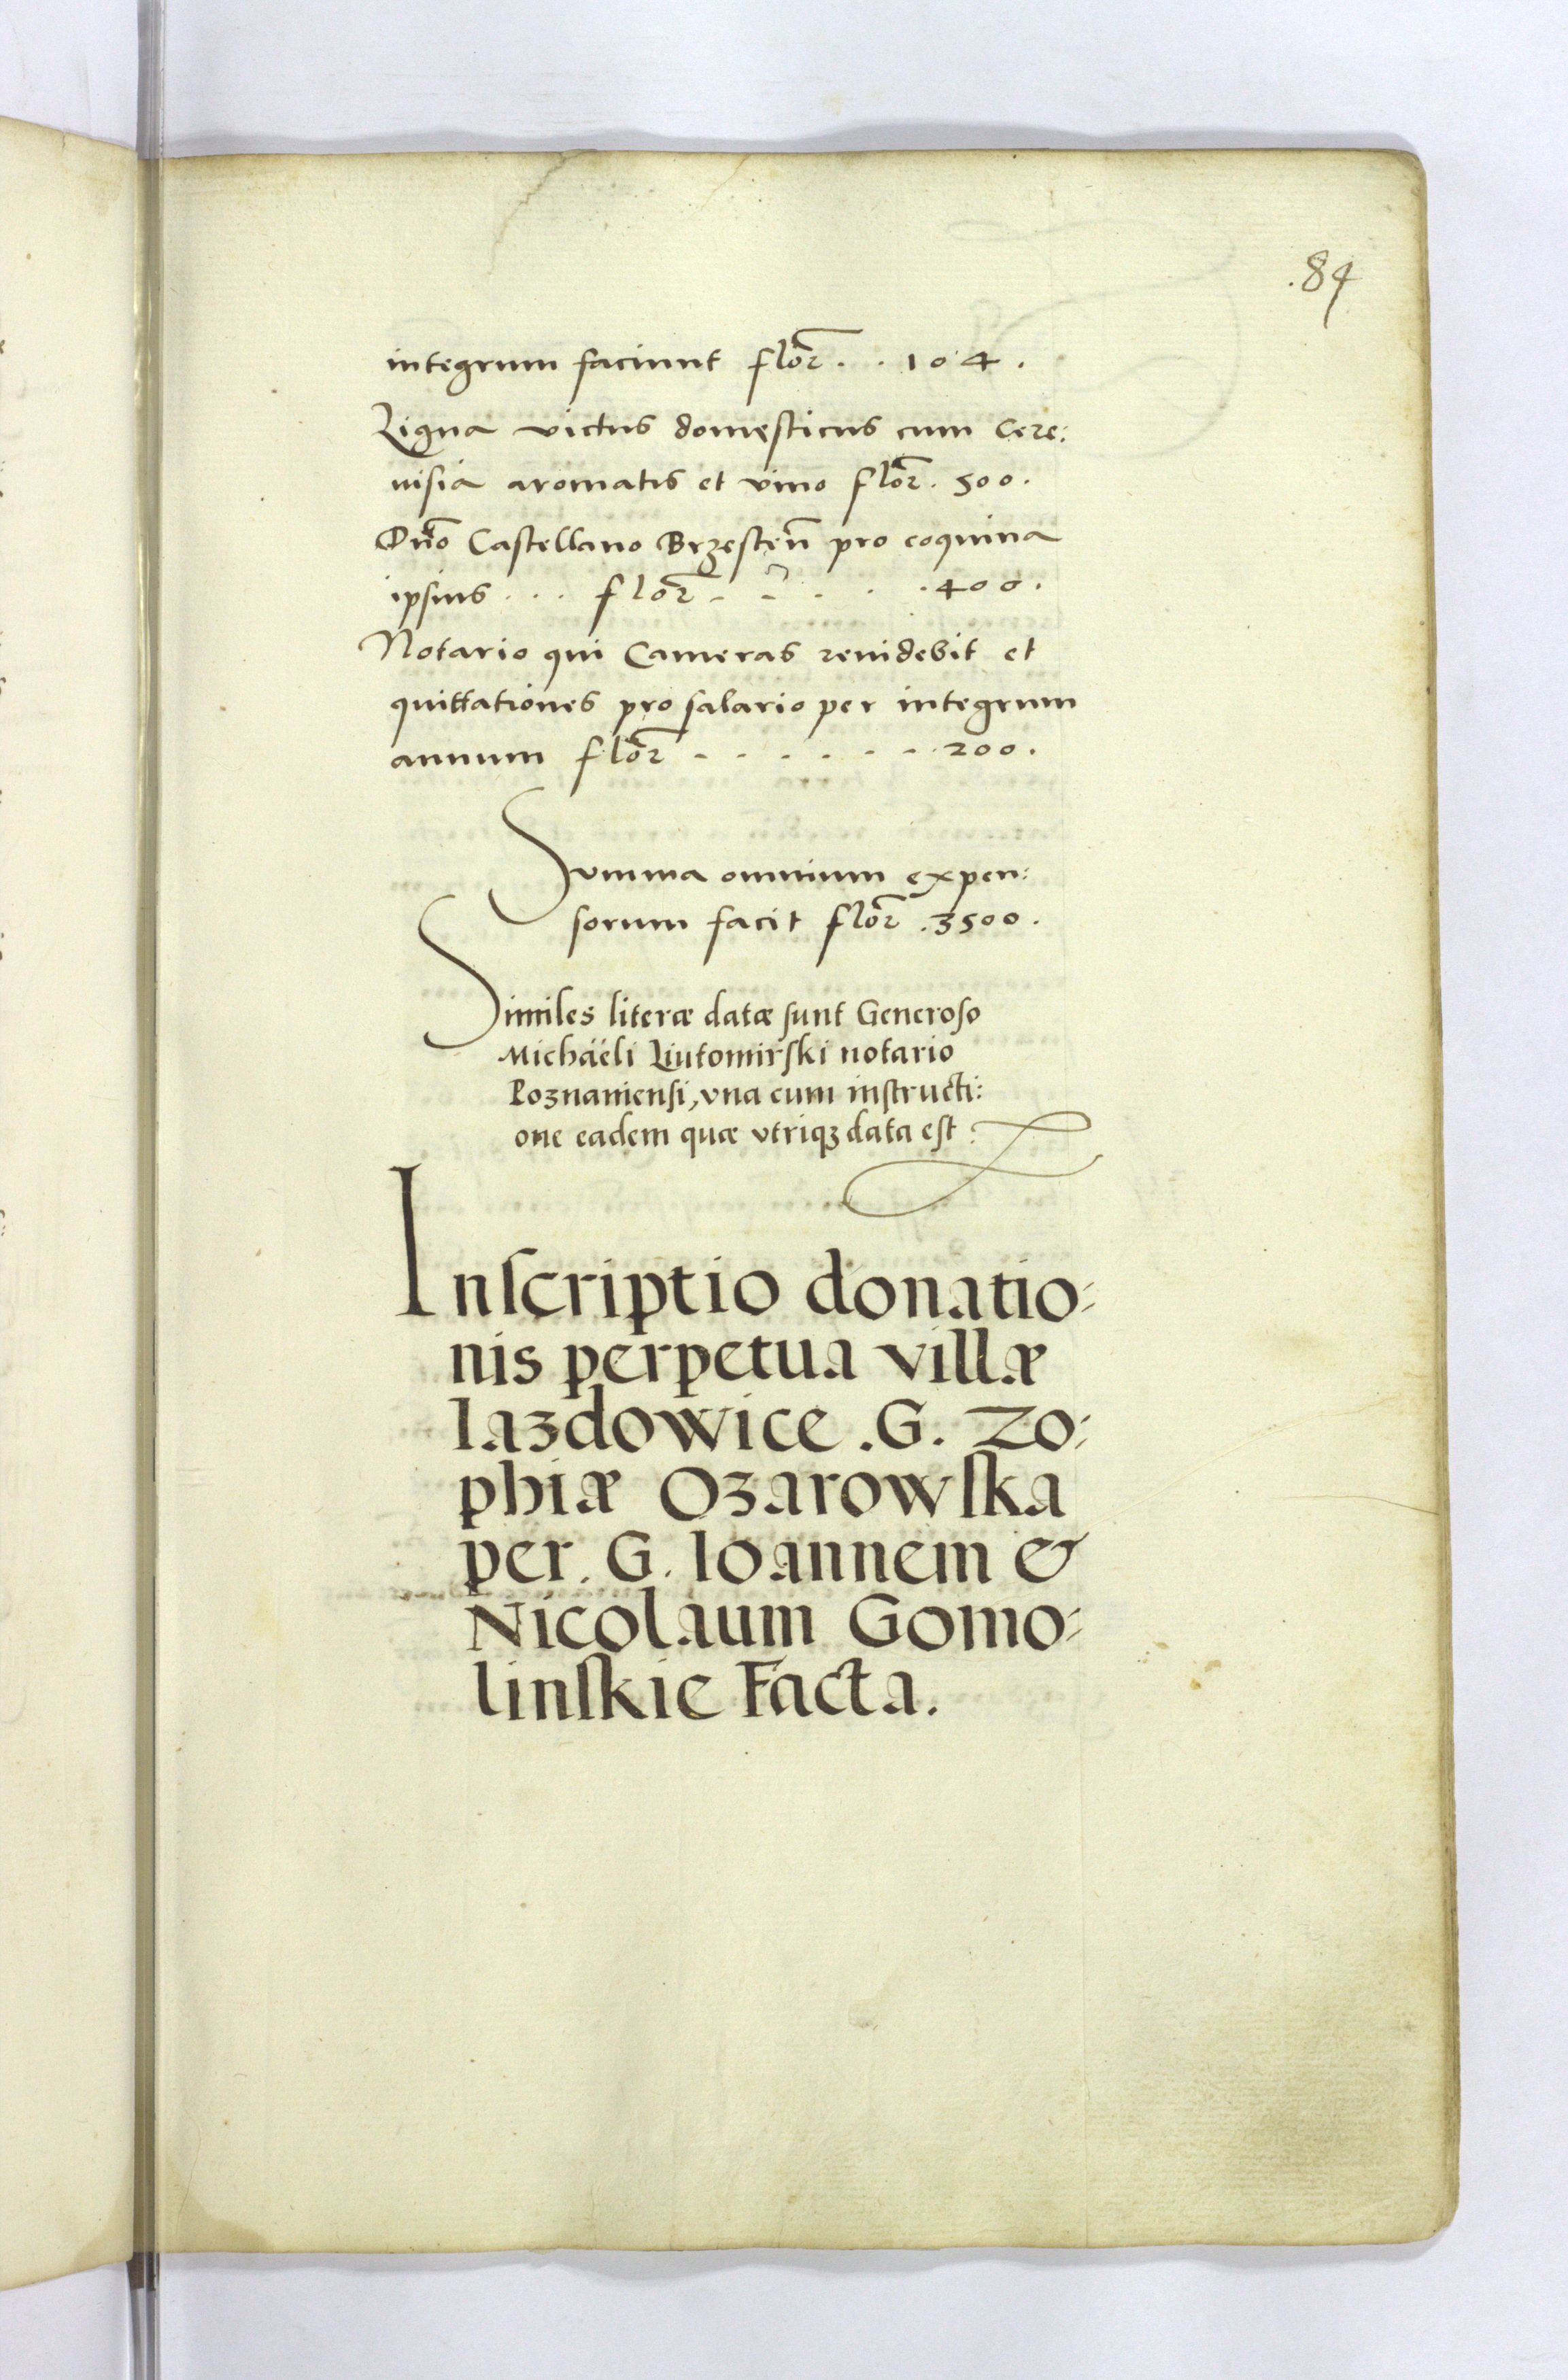 .84
integrum faciunt flor̃ . . 104 .
Ligna victus domesticus cum cere:
uisia aromatis et vino flor̃ . 500 .
Dn̄o Castellano Brzesten̄ pro coquina
ipsius . . . flor̃ . . . . . 400 .
Notario qui Cameras reuidebit et
quittationes pro salario per integrum
annum flor̃ . . . . . . . 200 .
Summa omnium expen:
sorum facit flor̃ . 3500 .
Similes literæ datæ sunt Generoso
Michaëli Liutomirski notario
Poznaniensi, vna cum instructi:
one eadem quæ vtriqꝫ data est .
Inscriptio donatio:
nis perpetua villæ
Iazdowice .G. Zo:
phiæ Ozarowska
per . G . Ioannem &
Nicolaum Gomo:
linskie Facta .